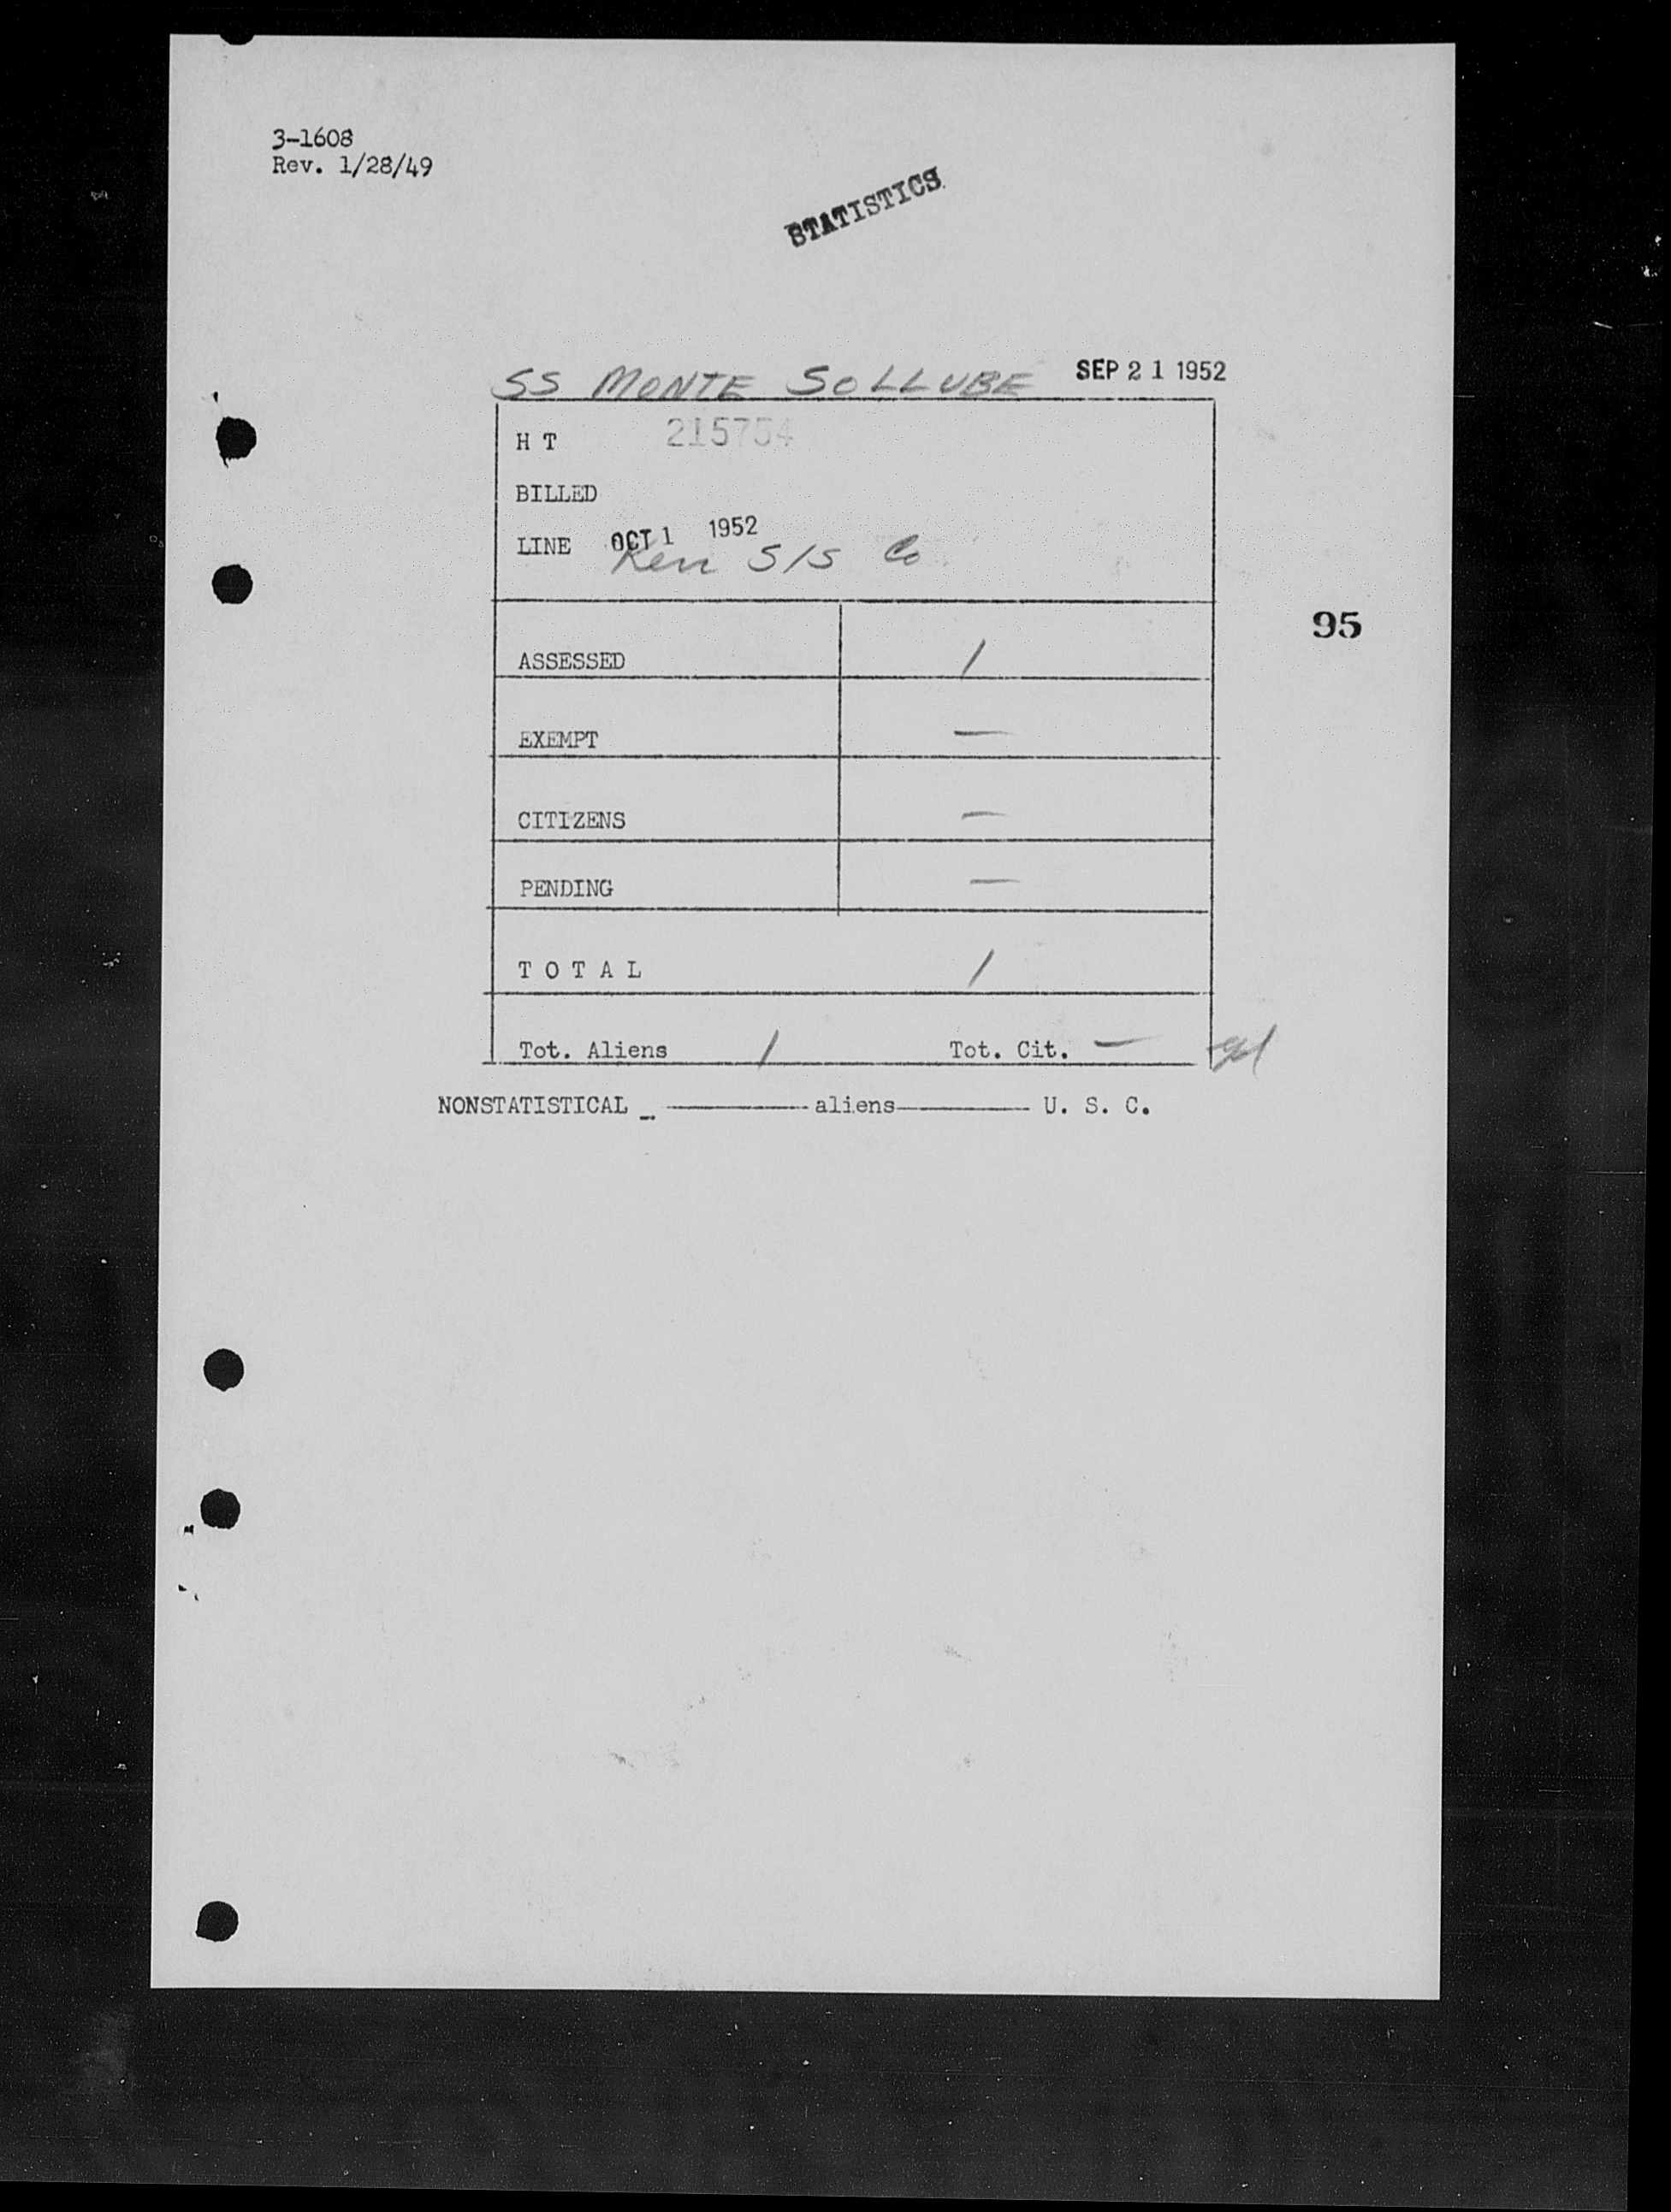 3-1608
Rev. 1/28/49
STATISTICS
SS MONTE SOLLUBE SEP 21 1952
H T 215754
BILLED
LINE OCT 1 1952
S/S Co
95
ASSESSED /
EXEMPT —
CITIZENS —
PENDING —
T O T A L /
Tot. Aliens / Tot. Cit. —
NONSTATISTICAL _ ———— aliens———— U. S. C.